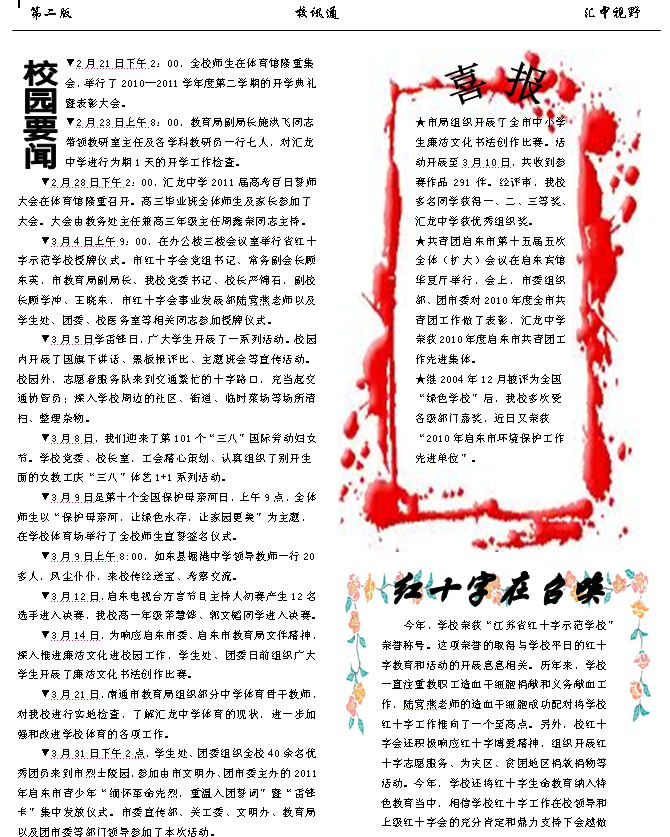 第二版
校讯通
汇中视野
校园要闻
▼2月21日下午2：00，全校师生在体育馆隆重集
会，举行了2010—2011学年度第二学期的开学典礼
暨表彰大会。
▼2月23日上午8：00，教育局副局长施洪飞同志
带领教研室主任及各学科教研员一行七人，对汇龙
中学进行为期1天的开学工作检查。
▼2月28日下午2：00，汇龙中学2011届高考百日誓师
大会在体育馆隆重召开。高三毕业班全体师生及家长参加了
大会。大会由教务处主任兼高三年级主任周鑫荣同志主持。
▼3月4日上午9：00，在办公楼三楼会议室举行省红十
字示范学校授牌仪式。市红十字会党组书记、常务副会长顾
东英，市教育局副局长、我校党委书记、校长严锦石，副校
长顾学冲、王晓东，市红十字会事业发展部陆霞燕老师以及
学生处、团委、校医务室等相关同志参加授牌仪式。
▼3月5日学雷锋日，广大学生开展了一系列活动。校园
内开展了国旗下讲话、黑板报评比、主题班会等宣传活动。
校园外，志愿者服务队来到交通繁忙的十字路口，充当起交
通协管员；深入学校周边的社区、街道、临时菜场等场所清
扫、整理杂物。
▼3月8日，我们迎来了第101个“三八”国际劳动妇女
节。学校党委、校长室，工会精心策划、认真组织了别开生
面的女教工庆“三八”体艺1+1系列活动。
▼3月9日是第十个全国保护母亲河日，上午9点，全体
师生以“保护母亲河，让绿色永存，让家园更美”为主题，
在学校体育场举行了全校师生宣誓签名仪式。
▼3月9日上午8:00，如东县掘港中学领导教师一行20
多人，风尘仆仆，来校传经送宝、考察交流。
▼3月12日，启东电视台方言节目主持人初赛产生12名
选手进入决赛，我校高一年级茅慧铧、郭文韬同学进入决赛。
▼3月14日，为响应启东市委、启东市教育局文件精神，
深入推进廉洁文化进校园工作，学生处、团委日前组织广大
学生开展了廉洁文化书法创作比赛。
▼3月21日，南通市教育局组织部分中学体育骨干教师，
对我校进行实地检查，了解汇龙中学体育的现状，进一步加
强和改进学校体育的各项工作。
▼3月31日下午2点，学生处、团委组织全校40余名优
秀团员来到市烈士陵园，参加由市文明办、团市委主办的2011
年启东市青少年“缅怀革命先烈，重温入团誓词”暨“雷锋
卡”集中发放仪式。市委宣传部、关工委、文明办、教育局
以及团市委等部门领导参加了本次活动。
喜报
★市局组织开展了全市中小学
生廉洁文化书法创作比赛。活
动开展至3月10日，共收到参
赛作品291件。经评审，我校
多名同学获得一、二、三等奖，
汇龙中学获优秀组织奖。
★共青团启东市第十五届五次
全体（扩大）会议在启东宾馆
华夏厅举行，会上，市委组织
部、团市委对2010年度全市共
青团工作做了表彰，汇龙中学
荣获2010年度启东市共青团工
作先进集体。
★继2004年12月被评为全国
“绿色学校”后，我校多次受
各级部门嘉奖，近日又荣获
“2010年启东市环境保护工作
先进单位”。
红十字在召唤
今年，学校荣获“江苏省红十字示范学校”
荣誉称号。这项荣誉的取得与学校平日的红十
字教育和活动的开展息息相关。历年来，学校
一直注重教职工造血干细胞捐献和义务献血工
作，陆霞燕老师的造血干细胞成功配对将学校
红十字工作推向了一个至高点。另外，校红十
字会还积极响应红十字博爱精神，组织开展红
十字志愿服务、为灾区、贫困地区捐款捐物等
活动。今年，学校还将红十字生命教育纳入特
色教育当中，相信学校红十字工作在校领导和
上级红十字会的充分肯定和鼎力支持下会越做